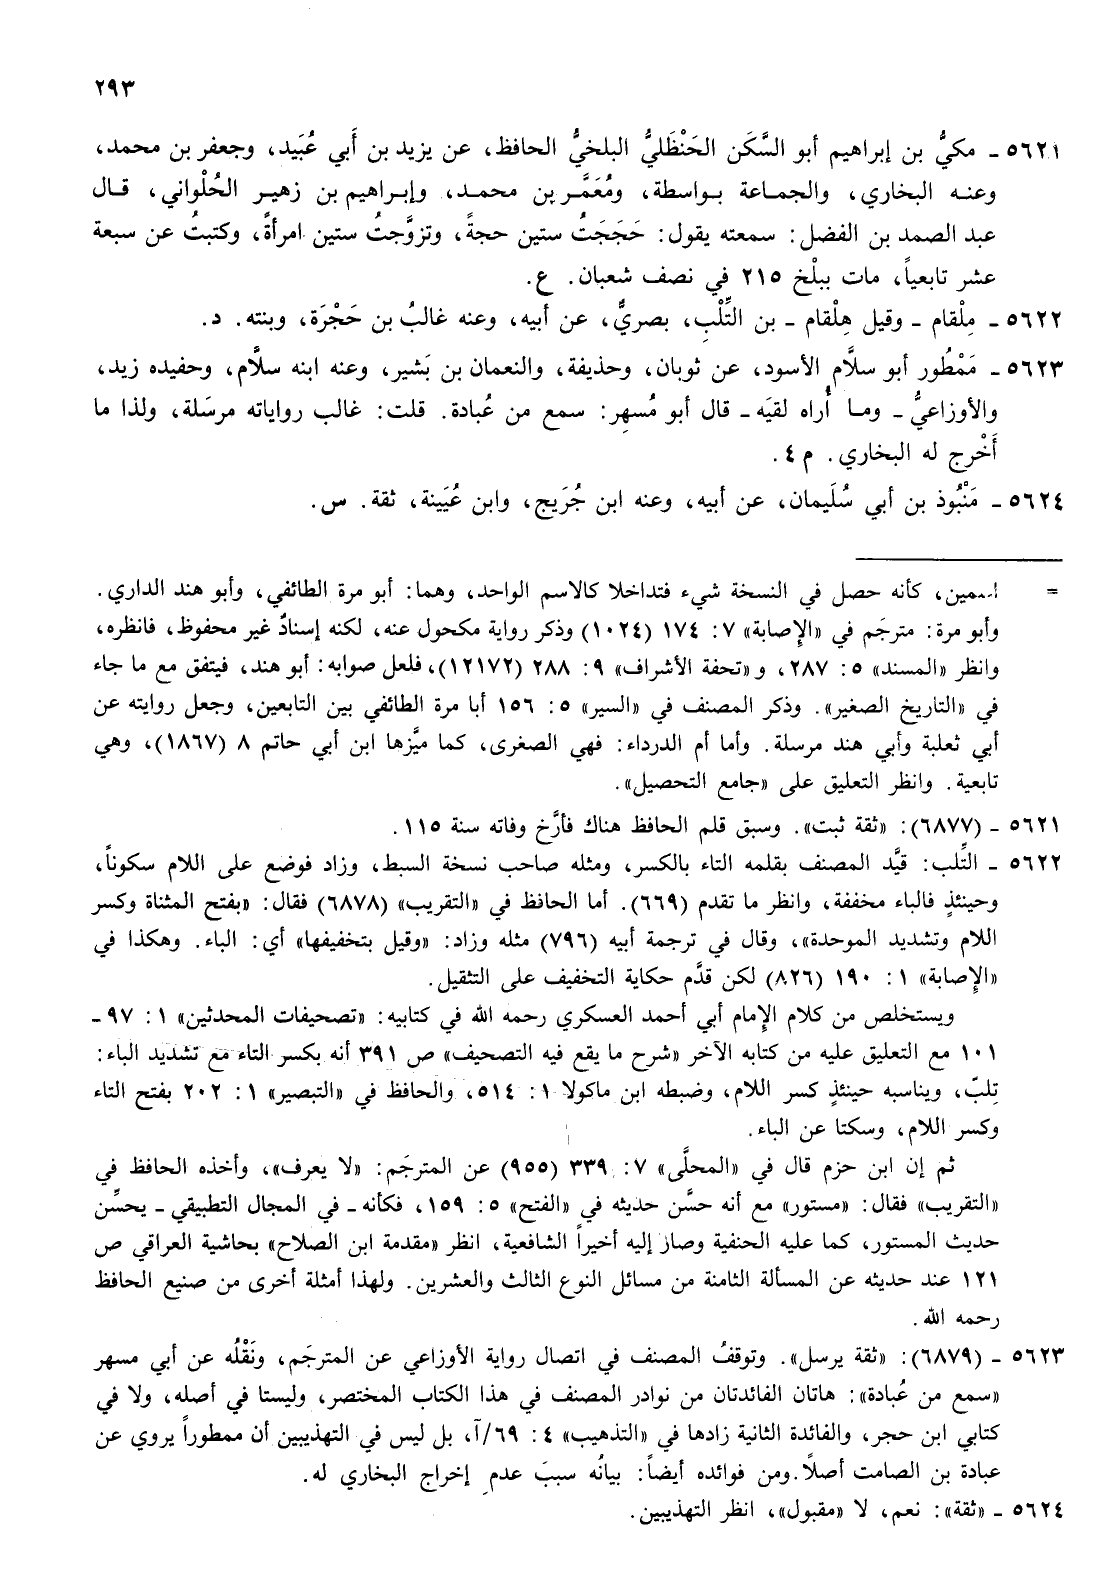 ٢٩٣
٥٦٢١ ـ مكيُّ بن إبراهيم أبو السَّكَن الحَنْظَليُّ البلخيُّ الحافظ، عن يزيد بن أَبي عُبَيد، وجعفر بن محمد،
وعنه البخاري، والجماعة بواسطة، ومُعَمَّر بن محمد، وإبراهيم بن زهير الحُلْواني، قال
عبد الصمد بن الفضل: سمعته يقول: حَجَجَتُ ستين حجةً، وتزوَّجتُ ستين امرأةً، وكتبتُ عن سبعة
عشر تابعياً، مات ببلْخ ٢١٥ في نصف شعبان. ع.
٥٦٢٢ ـ مِلْقام ـ وقيل هِلْقام ـ بن التِّلْبِ، بصريٌّ، عن أبيه، وعنه غالبُ بن حَجْرَة، وبنته. د.
٥٦٢٣ ـ مَمْطُور أبو سلَّام الأسود، عن ثوبان، وحذيفة، والنعمان بن بَشير، وعنه ابنه سلَّام، وحفيده زيد،
والأوزاعيُّ ـ وما أُراه لقيَه ـ قال أبو مُسهِر: سمع من عُبادة. قلت: غالب رواياته مرسَلة، ولذا ما
أَخْرج له البخاري. م ٤.
٥٦٢٤ ـ مَنْبُوذ بن أبي سُلَيمان، عن أبيه، وعنه ابن جُرَيج، وابن عُيَينة، ثقة. س.
= اسمين، كأنه حصل في النسخة شيء فتداخلا كالاسم الواحد، وهما: أبو مرة الطائفي، وأبو هند الداري.
وأبو مرة: مترجَم في «الإصابة» ٧: ١٧٤ (١٠٢٤) وذكر رواية مكحول عنه، لكنه إسنادٌ غير محفوظ، فانظره،
وانظر «المسند» ٥: ٢٨٧، و«تحفة الأشراف» ٩: ٢٨٨ (١٢١٧٢)، فلعل صوابه: أبو هند، فيتفق مع ما جاء
في «التاريخ الصغير». وذكر المصنف في «السير» ٥: ١٥٦ أبا مرة الطائفي بين التابعين، وجعل روايته عن
أبي ثعلبة وأبي هند مرسلة. وأما أم الدرداء: فهي الصغرى، كما ميَّزها ابن أبي حاتم ٨ (١٨٦٧)، وهي
تابعية. وانظر التعليق على «جامع التحصيل».
٥٦٢١ ـ (٦٨٧٧): «ثقة ثبت». وسبق قلم الحافظ هناك فأرَّخ وفاته سنة ١١٥.
٥٦٢٢ ـ التِّلب: قيَّد المصنف بقلمه التاء بالكسر، ومثله صاحب نسخة السبط، وزاد فوضع على اللام سكوناً،
وحينئذٍ فالباء مخففة، وانظر ما تقدم (٦٦٩). أما الحافظ في «التقريب» (٦٨٧٨) فقال: «بفتح المثناة وكسر
اللام وتشديد الموحدة»، وقال في ترجمة أبيه (٧٩٦) مثله وزاد: «وقيل بتخفيفها» أي: الباء. وهكذا في
«الإصابة» ١: ١٩٠ (٨٢٦) لكن قدَّم حكاية التخفيف على التثقيل.
ويستخلص من كلام الإمام أبي أحمد العسكري رحمه الله في كتابيه: «تصحيفات المحدثين» ١: ٩٧ ـ
١٠١ مع التعليق عليه من كتابه الآخر «شرح ما يقع فيه التصحيف» ص ٣٩١ أنه بكسر التاء مع تشديد الباء:
تِلبّ، ويناسبه حينئذٍ كسر اللام، وضبطه ابن ماكولا ١: ٥١٤، والحافظ في «التبصير» ١: ٢٠٢ بفتح التاء
وكسر اللام، وسكتا عن الباء.
ثم إن ابن حزم قال في «المحلَّى» ٧: ٣٣٩ (٩٥٥) عن المترجَم: «لا يعرف»، وأخذه الحافظ في
«التقريب» فقال: «مستور» مع أنه حسَّن حديثه في «الفتح» ٥: ١٥٩، فكأنه ـ في المجال التطبيقي ـ يحسِّن
حديث المستور، كما عليه الحنفية وصار إليه أخيراً الشافعية، انظر «مقدمة ابن الصلاح» بحاشية العراقي ص
١٢١ عند حديثه عن المسألة الثامنة من مسائل النوع الثالث والعشرين. ولهذا أمثلة أخرى من صنيع الحافظ
رحمه الله.
٥٦٢٣ ـ (٦٨٧٩): «ثقة يرسل». وتوقفُ المصنف في اتصال رواية الأوزاعي عن المترجَم، ونَقْلُه عن أبي مسهر
«سمع من عُبادة»: هاتان الفائدتان من نوادر المصنف في هذا الكتاب المختصر، وليستا في أصله، ولا في
كتابي ابن حجر، والفائدة الثانية زادها في «التذهيب» ٤: ٦٩/آ، بل ليس في التهذيبين أن ممطوراً يروي عن
عبادة بن الصامت أصلاً. ومن فوائده أيضاً: بيانُه سببَ عدم إخراج البخاري له.
٥٦٢٤ ـ «ثقة»: نعم، لا «مقبول»، انظر التهذيبين.